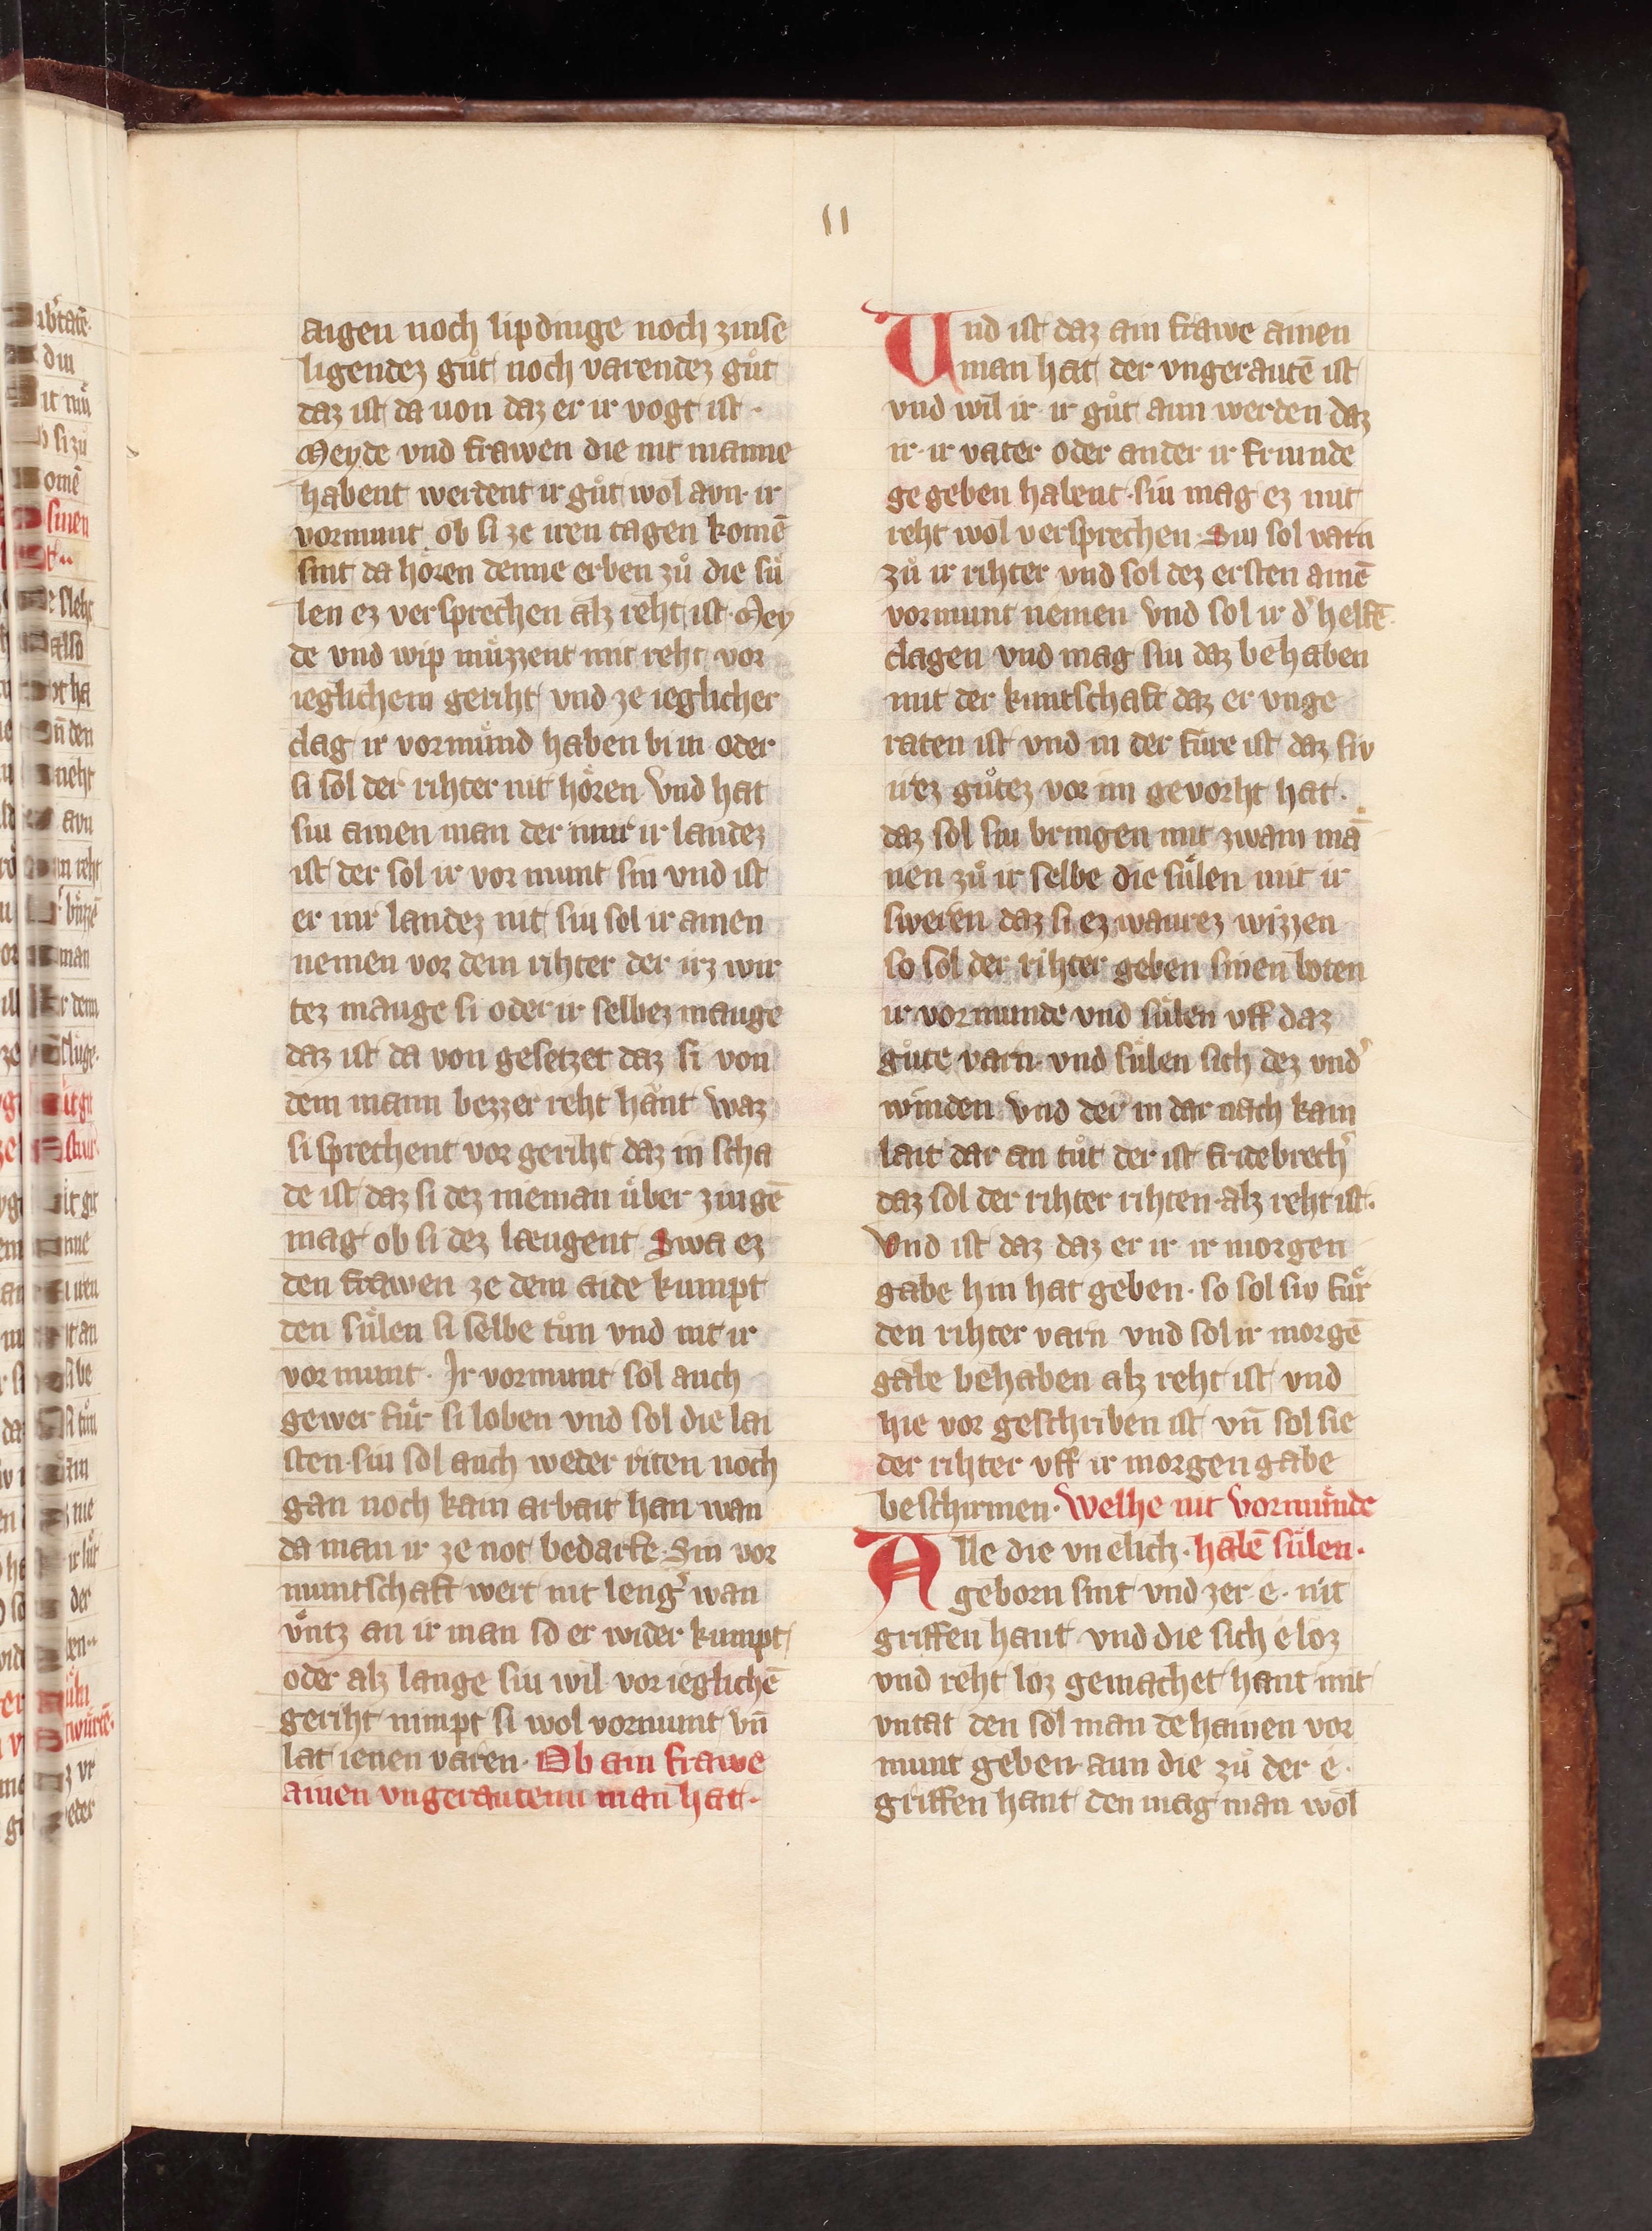 11
aigen noch lipdinge noch zinse
ligendez guͦt noch varendez guͦt
daz ist da uon daz er ir vogt ist ·
Meyde vnd frawen die nit manne
habent werdent ir guͦt wol avn ir
vormunt ob si ze iren tagen komē
sint da hoͤren denne erben zuͦ die suͤ
len ez versprechen alz reht ist · Mey
de vnd wip muͤzzent mit reht vor
ieglichem geriht vnd ze ieglicher
clag ir vormuͤnd haben bi in oder
si sol der rihter nit hoͤren Vnd hat
siu ainen man der inne ir landez
ist der sol ir vor munt sin vnd ist
er inr landez nit siu sol ir ainen
nemen vor dem rihter der irz wir
tez mauge si oder ir selbez mauge
daz ist da von gesetzet daz si von
dem mann bezzer reht haͤnt waz
si sprechent vor geriht daz in scha
de ist daz si dez nieman uͤber zuigē
mag ob si dez laugent Swa ez
den frawen ze dem aide kumpt
den suͤlen si selbe tuͦn vnd nit ir
vor munt · Ir vormunt sol auch
gewer fuͤr si loben vnd sol die lai
sten · siu sol auch weder riten noch
gan noch kain arbait han wan
da man ir ze not bedarfe · Sin vor
muntschaft wert nit leng᾽ wan
vͤntz an ir man so er wider kumpt
oder alz lange siu wil vor ieglichē
geriht nimpt si wol vormunt vn̄
lat ienen varen · Ob ain frawe
ainen vngerautenn man hat ·
Und ist daz ain frawe ainen
man hat der vngerautē ist
vnd wil ir ir guͦt ann werden daz
ir · ir vater oder ander ir friunde
ge geben habent · siu mag ez mit
reht wol versprechen · Siu sol varn
zuͦ ir rihter vnd sol dez ersten ainē
vormunt nemen vnd sol ir d᾽ helfē
clagen vnd mag siu daz behaben
mit der kuntschaft daz er vnge
raten ist vnd in der fuͤre ist daz siv
irez guͦtez vor im gevorht hat ·
daz sol siu bringen mit zwain mā
nen zuͦ ir selbe die suͤlen mit ir
sweren daz si ez waurez wizzen
so sol der rihter geben sinen boten
ir vormunde vnd suͤlen vff daz
guͦte varn vnd suͤlen sich dez vnd᾽
winden vnd der in dar nach kain
lait dar an tuͦt der ist fridebrech᾽
daz sol der rihter rihten · alz reht ist ·
Vnd ist daz daz er ir ir morgen
gabe hin hat geben · so sol siv fuͤr
den rihter varn vnd sol ir morgē
gabe behaben alz reht ist vnd
hie vor geschriben ist vn̄ sol sie
der rihter vff ir morgen gabe
beschirmen · Welhe nit vormuͤnde
Alle die vn elich · habē suͤlen ·
geborn sint vnd zer · e · nit
griffen hant vnd die sich e loz
vnd reht loz gemachet hant mit
vntat den sol man dehainen vor
munt geben ann die zuͦ der e ·
griffen hant den mag man wol